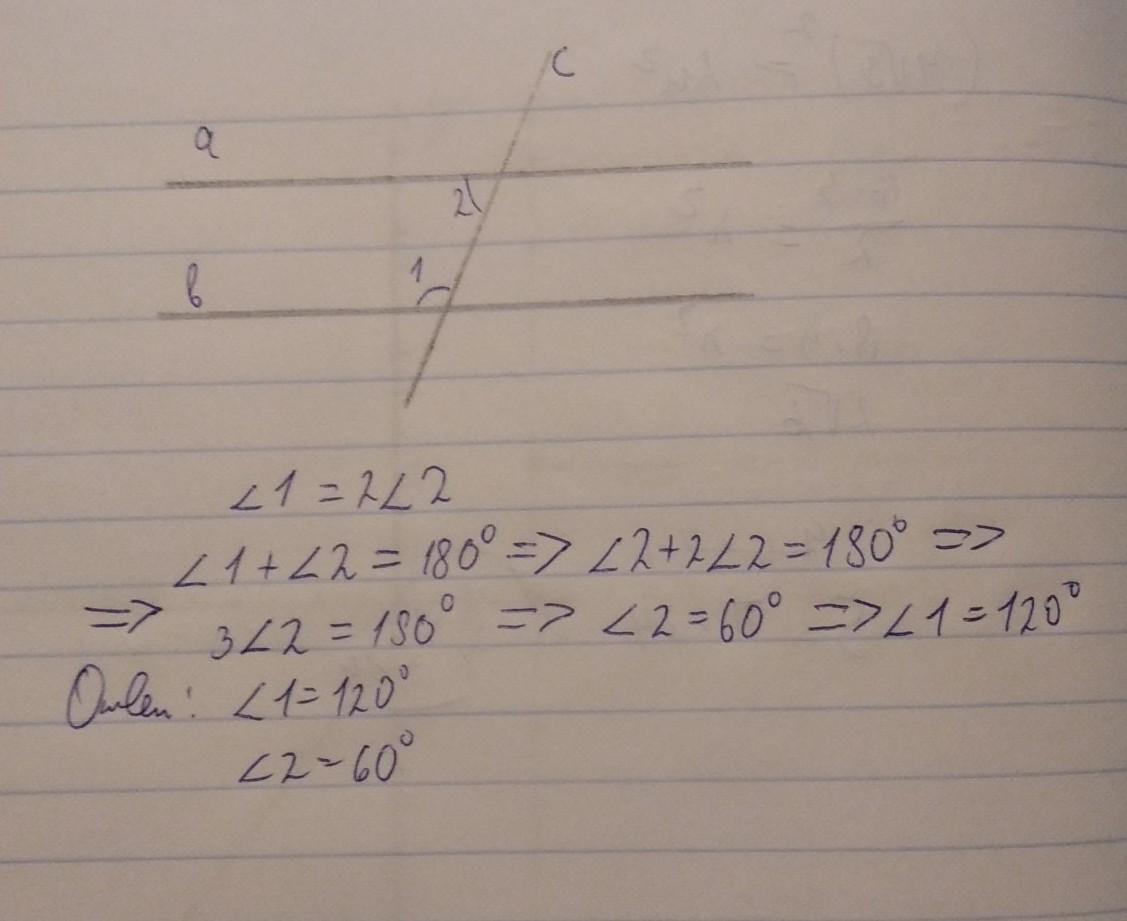 c
a
2
1
b
∠1 = 2∠2
∠1 + ∠2 = 180° => ∠2 + 2∠2 = 180° =>
=> 3∠2 = 180° => ∠2 = 60° => ∠1 = 120°
Ответ: ∠1 = 120°
∠2 = 60°